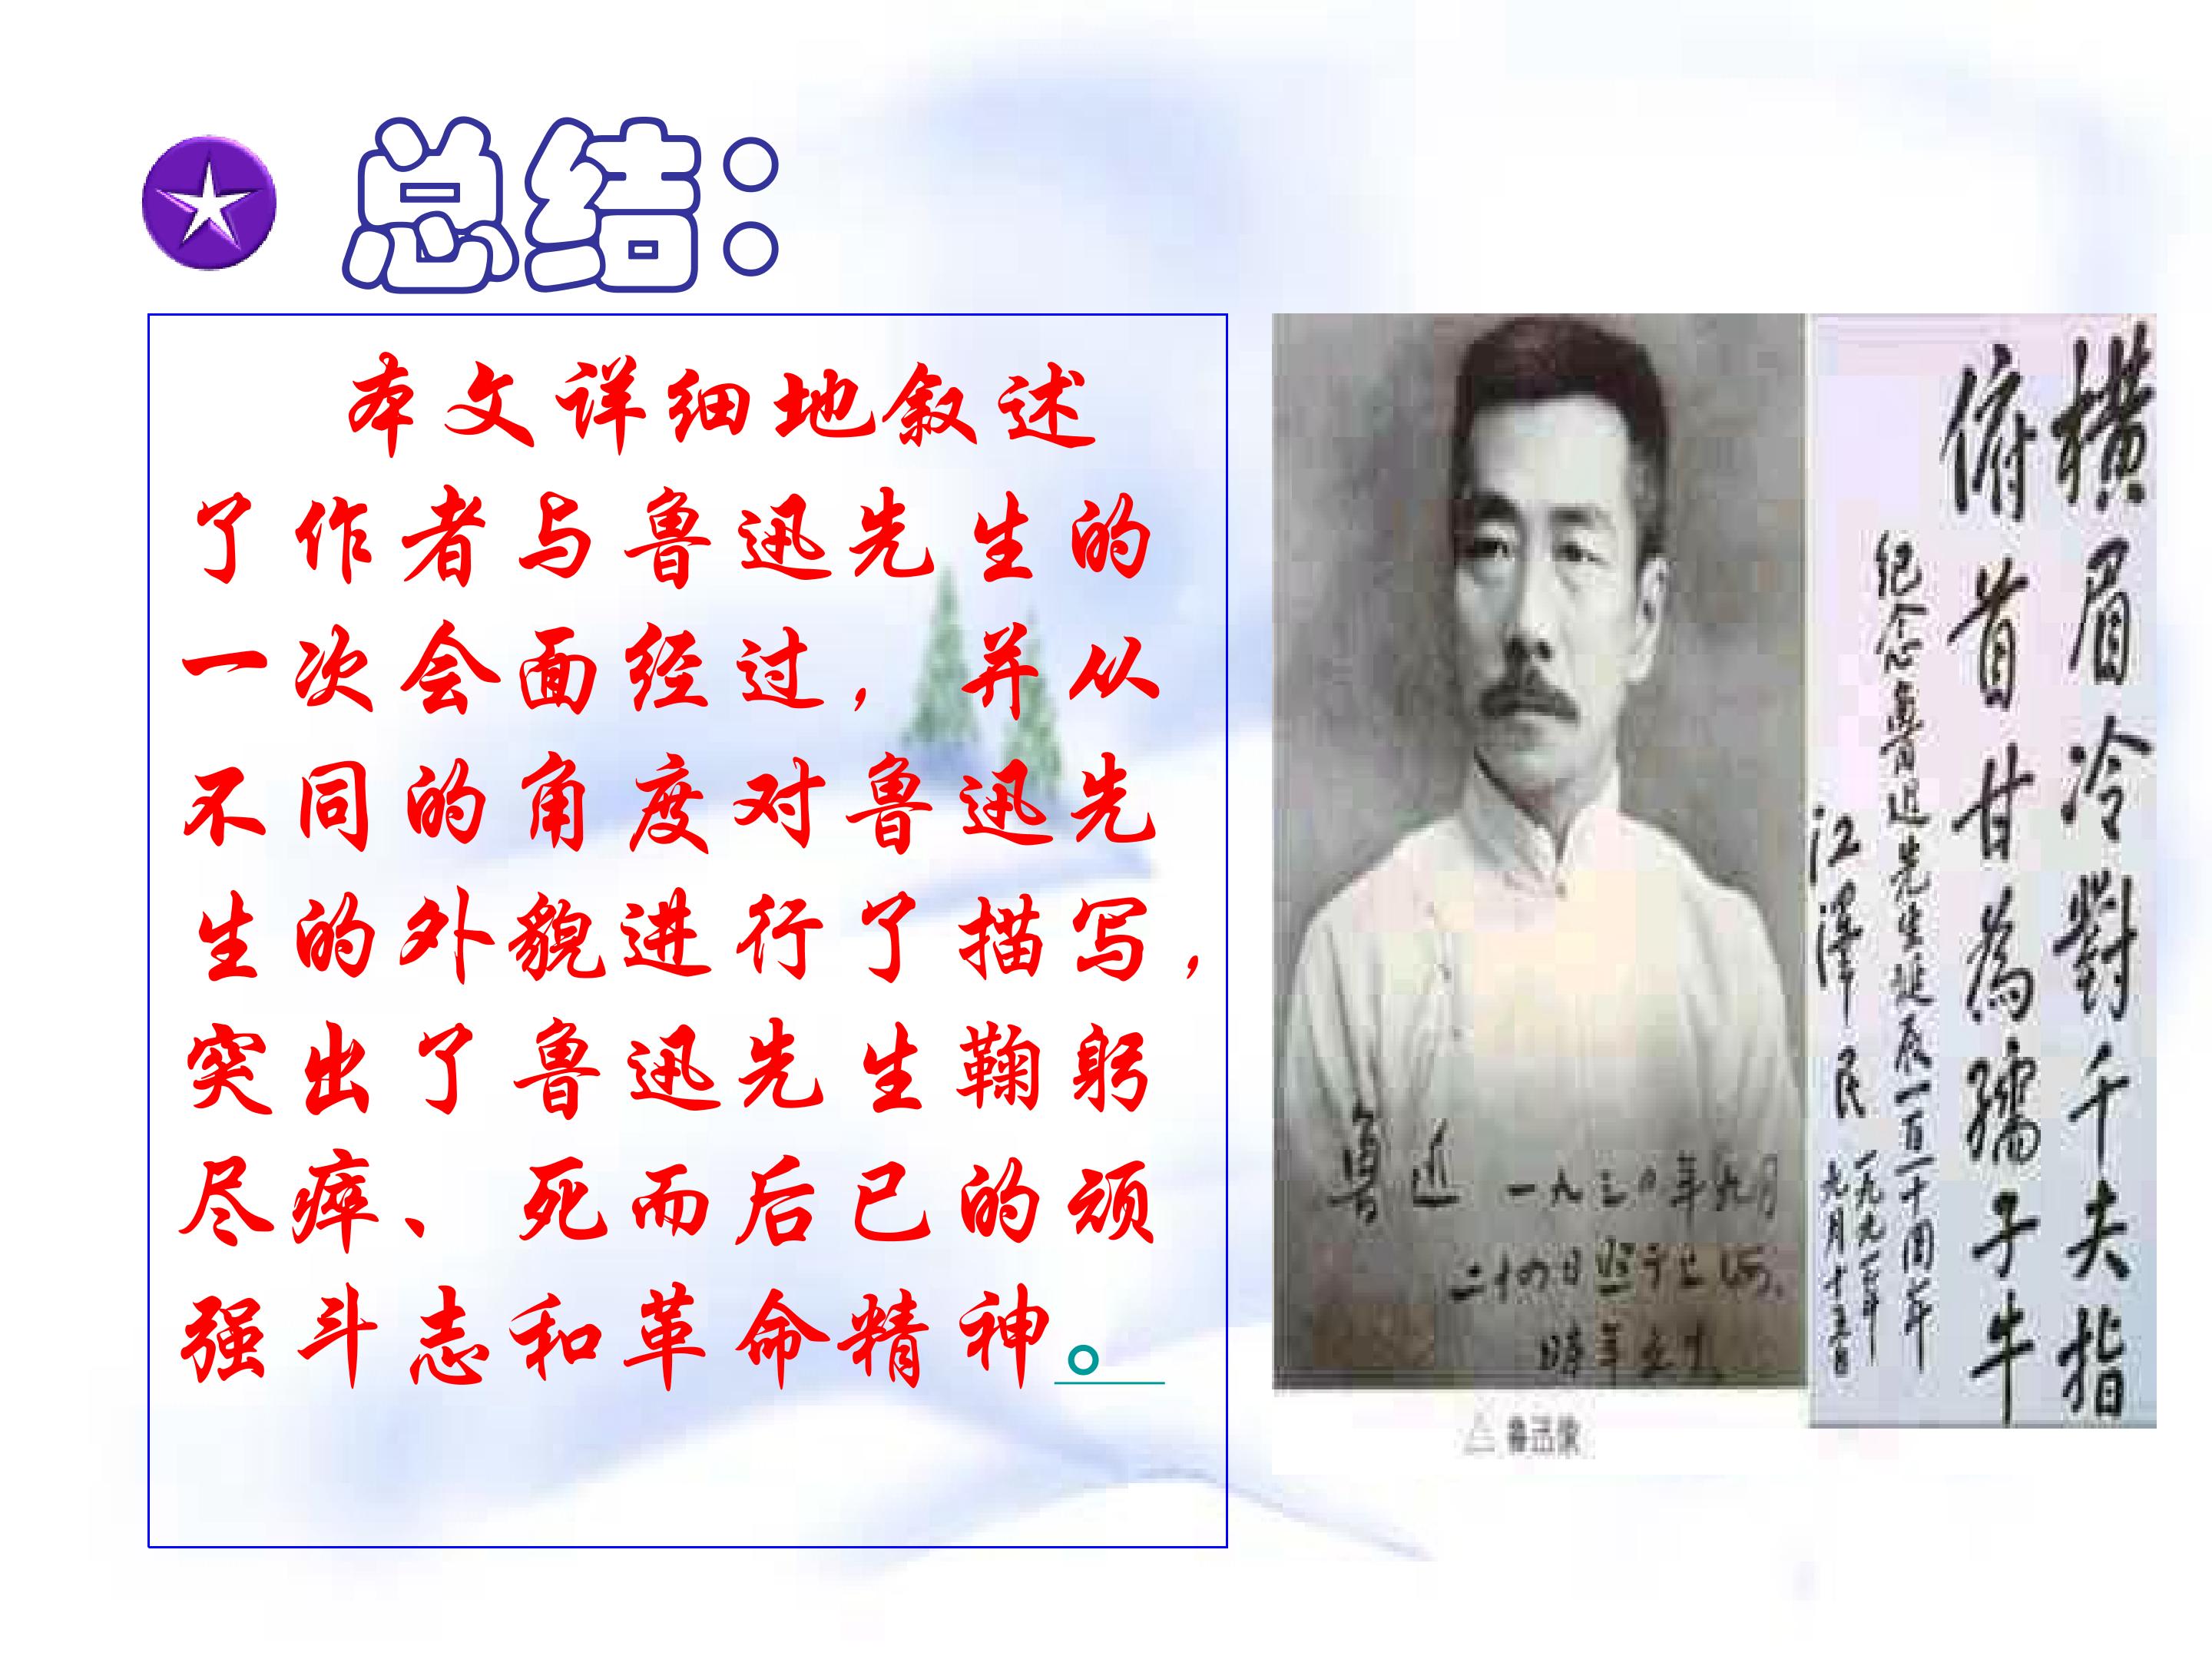 总结：
本文详细地叙述
了作者与鲁迅先生的
一次会面经过，并从
不同的角度对鲁迅先
生的外貌进行了描写，
突出了鲁迅先生鞠躬
尽瘁、死而后已的顽
强斗志和革命精神。
鲁迅 一九三〇年九月
二十四日照于上海,
时年五十
△ 鲁迅像
横眉冷對千夫指
俯首甘為孺子牛
纪念鲁迅先生诞辰一百一十周年
江泽民
一九九一年
九月十五日